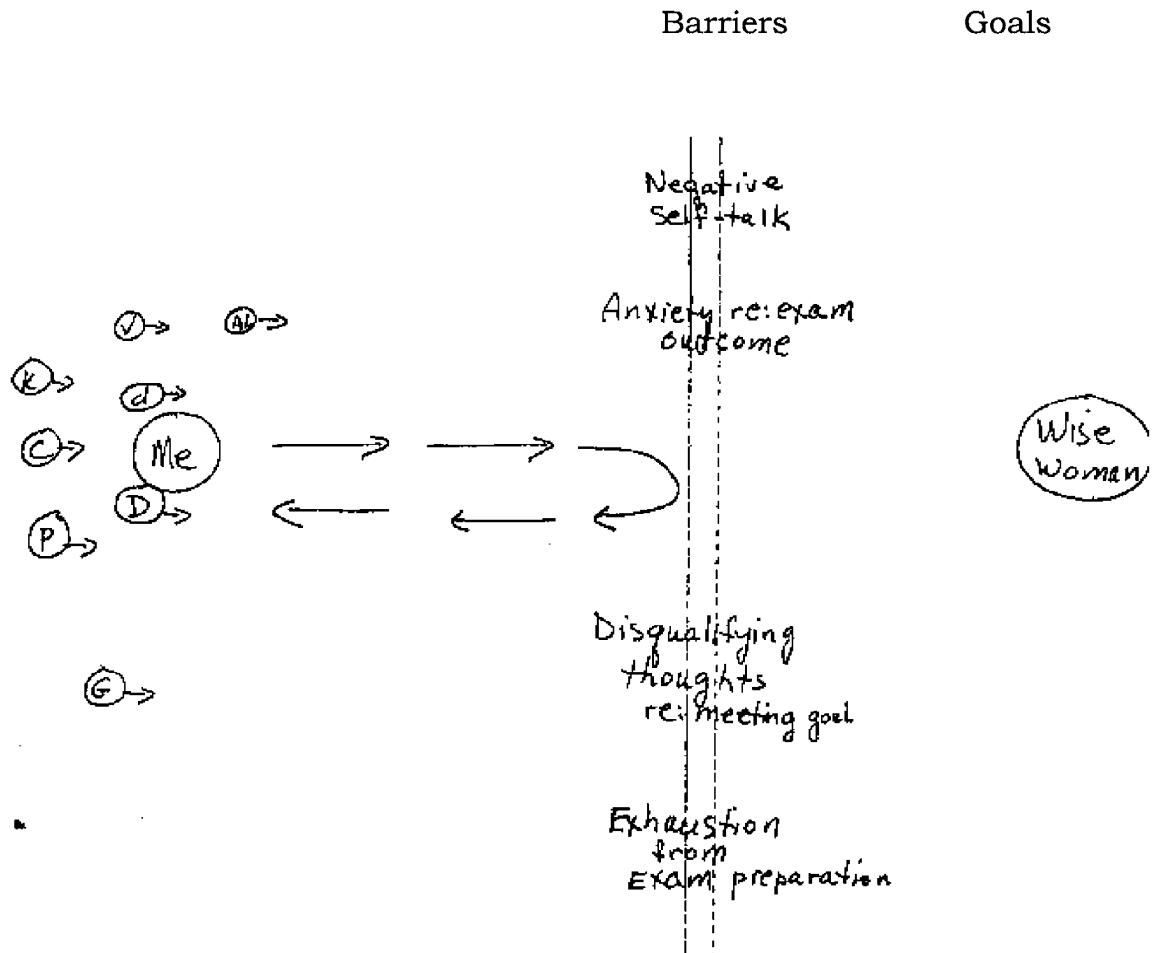 Barriers Goals
Negative
Self-talk
Anxiety re: exam
outcome
V
AL
K
d
C
Me
Wise
Woman
D
P
Disqualifying
thoughts
re: meeting goal
G
Exhaustion
from
Exam preparation